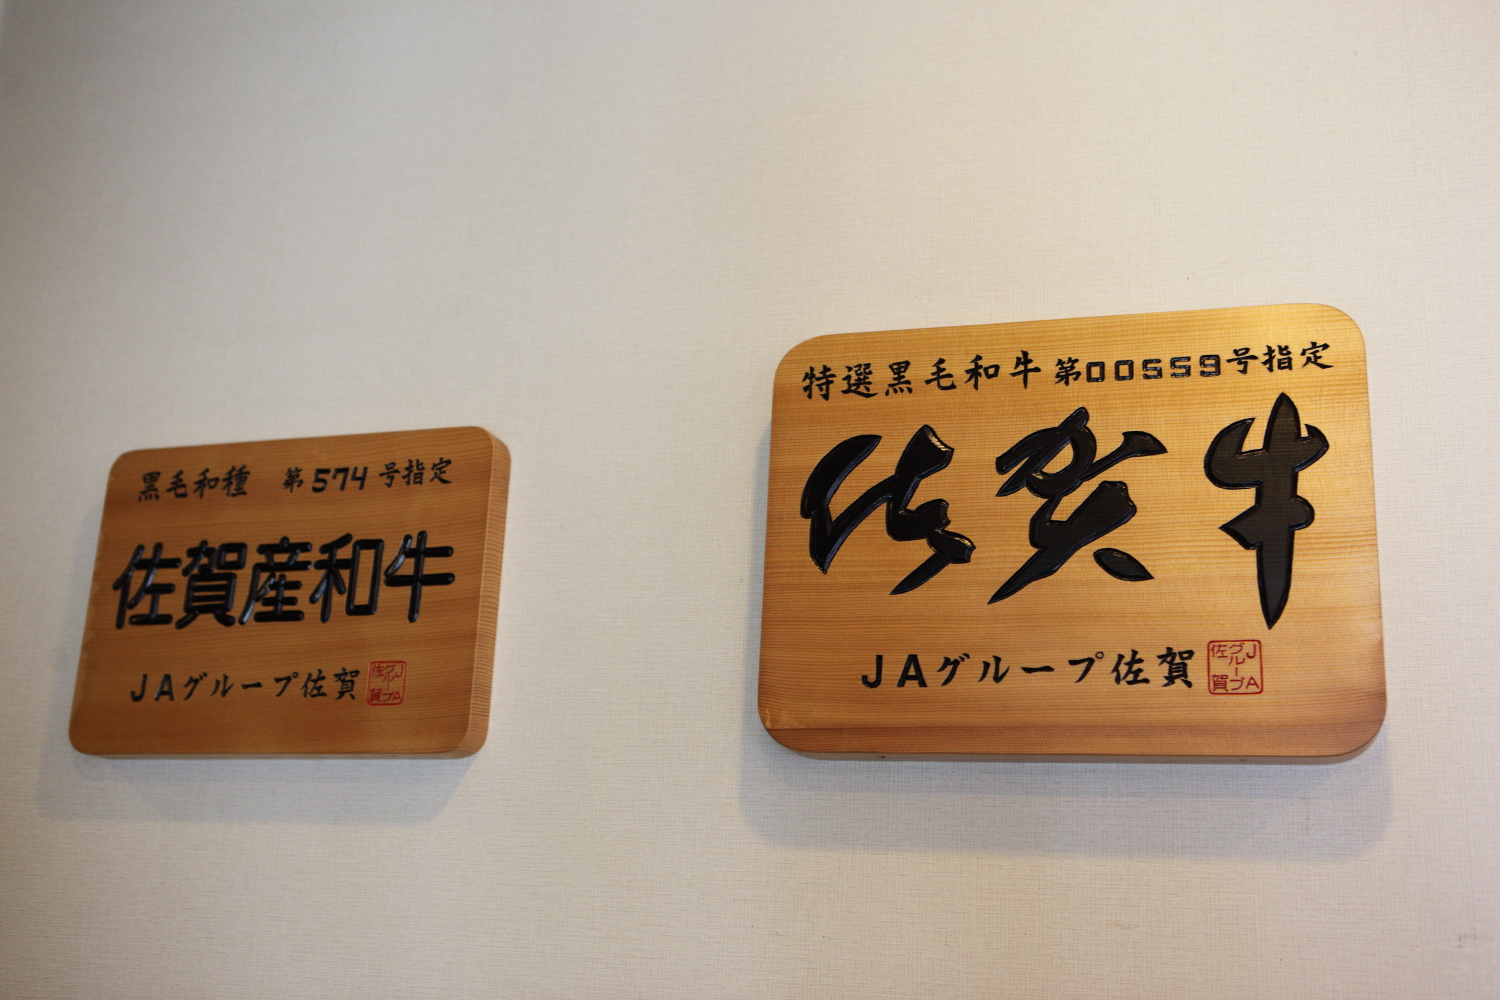 黒毛和種 第574号指定
佐賀産和牛
JAグループ佐賀
JA
グループ
佐賀
特選黒毛和牛第00559号指定
佐賀牛
JAグループ佐賀
JA
グループ
佐賀